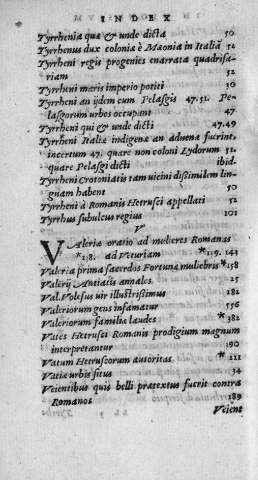 INDEX
Tyrrheniæ quæ & unde dicta 50
Tyrrhenus dux coloniæ è Mæonia in Italiā 52
Tyrrheni regis progenies enarrata quadrifa-
riam 52
Tyrrheni maris imperio potiti 30
Tyrrheni an ijdem cum Pelasgis 47.51. Pe-
lasgorum urbes occupint 47
Tyrrheni qui & unde dicti 47.49
Tyrrheni Italiæ indigenæ an aduenæ fuerint,
incertum 47. quare non coloni Lydorum 51.
quare Pelasgi dicti ibid.
Tyrrheni Crotoniatis tam uicini dissimilem lin-
guam habent 50
Tyrrheni à Romanis Hetrusci appellati 52
Tyrrhus subulcus regius 101
V
Valeria oratio ad mulieres Romanas
*138. ad Veturiam *139. 141
Valeria prima sacerdos Fortunæ muliebris *158
Valerij Antiatis annales 25
Val. Volesus uir illustrissimus 182
Valeriorum gens infamatur 556
Valeriorum familiæ laudes *382
Vates Hetrusci Romanis prodigium magnum
interpretantur 190
Vatum Hetruscorum autoritas *211
Vatiæ urbis situs 34
Veientibus quis belli prætextus fuerit contra
Romanos 189
Veient